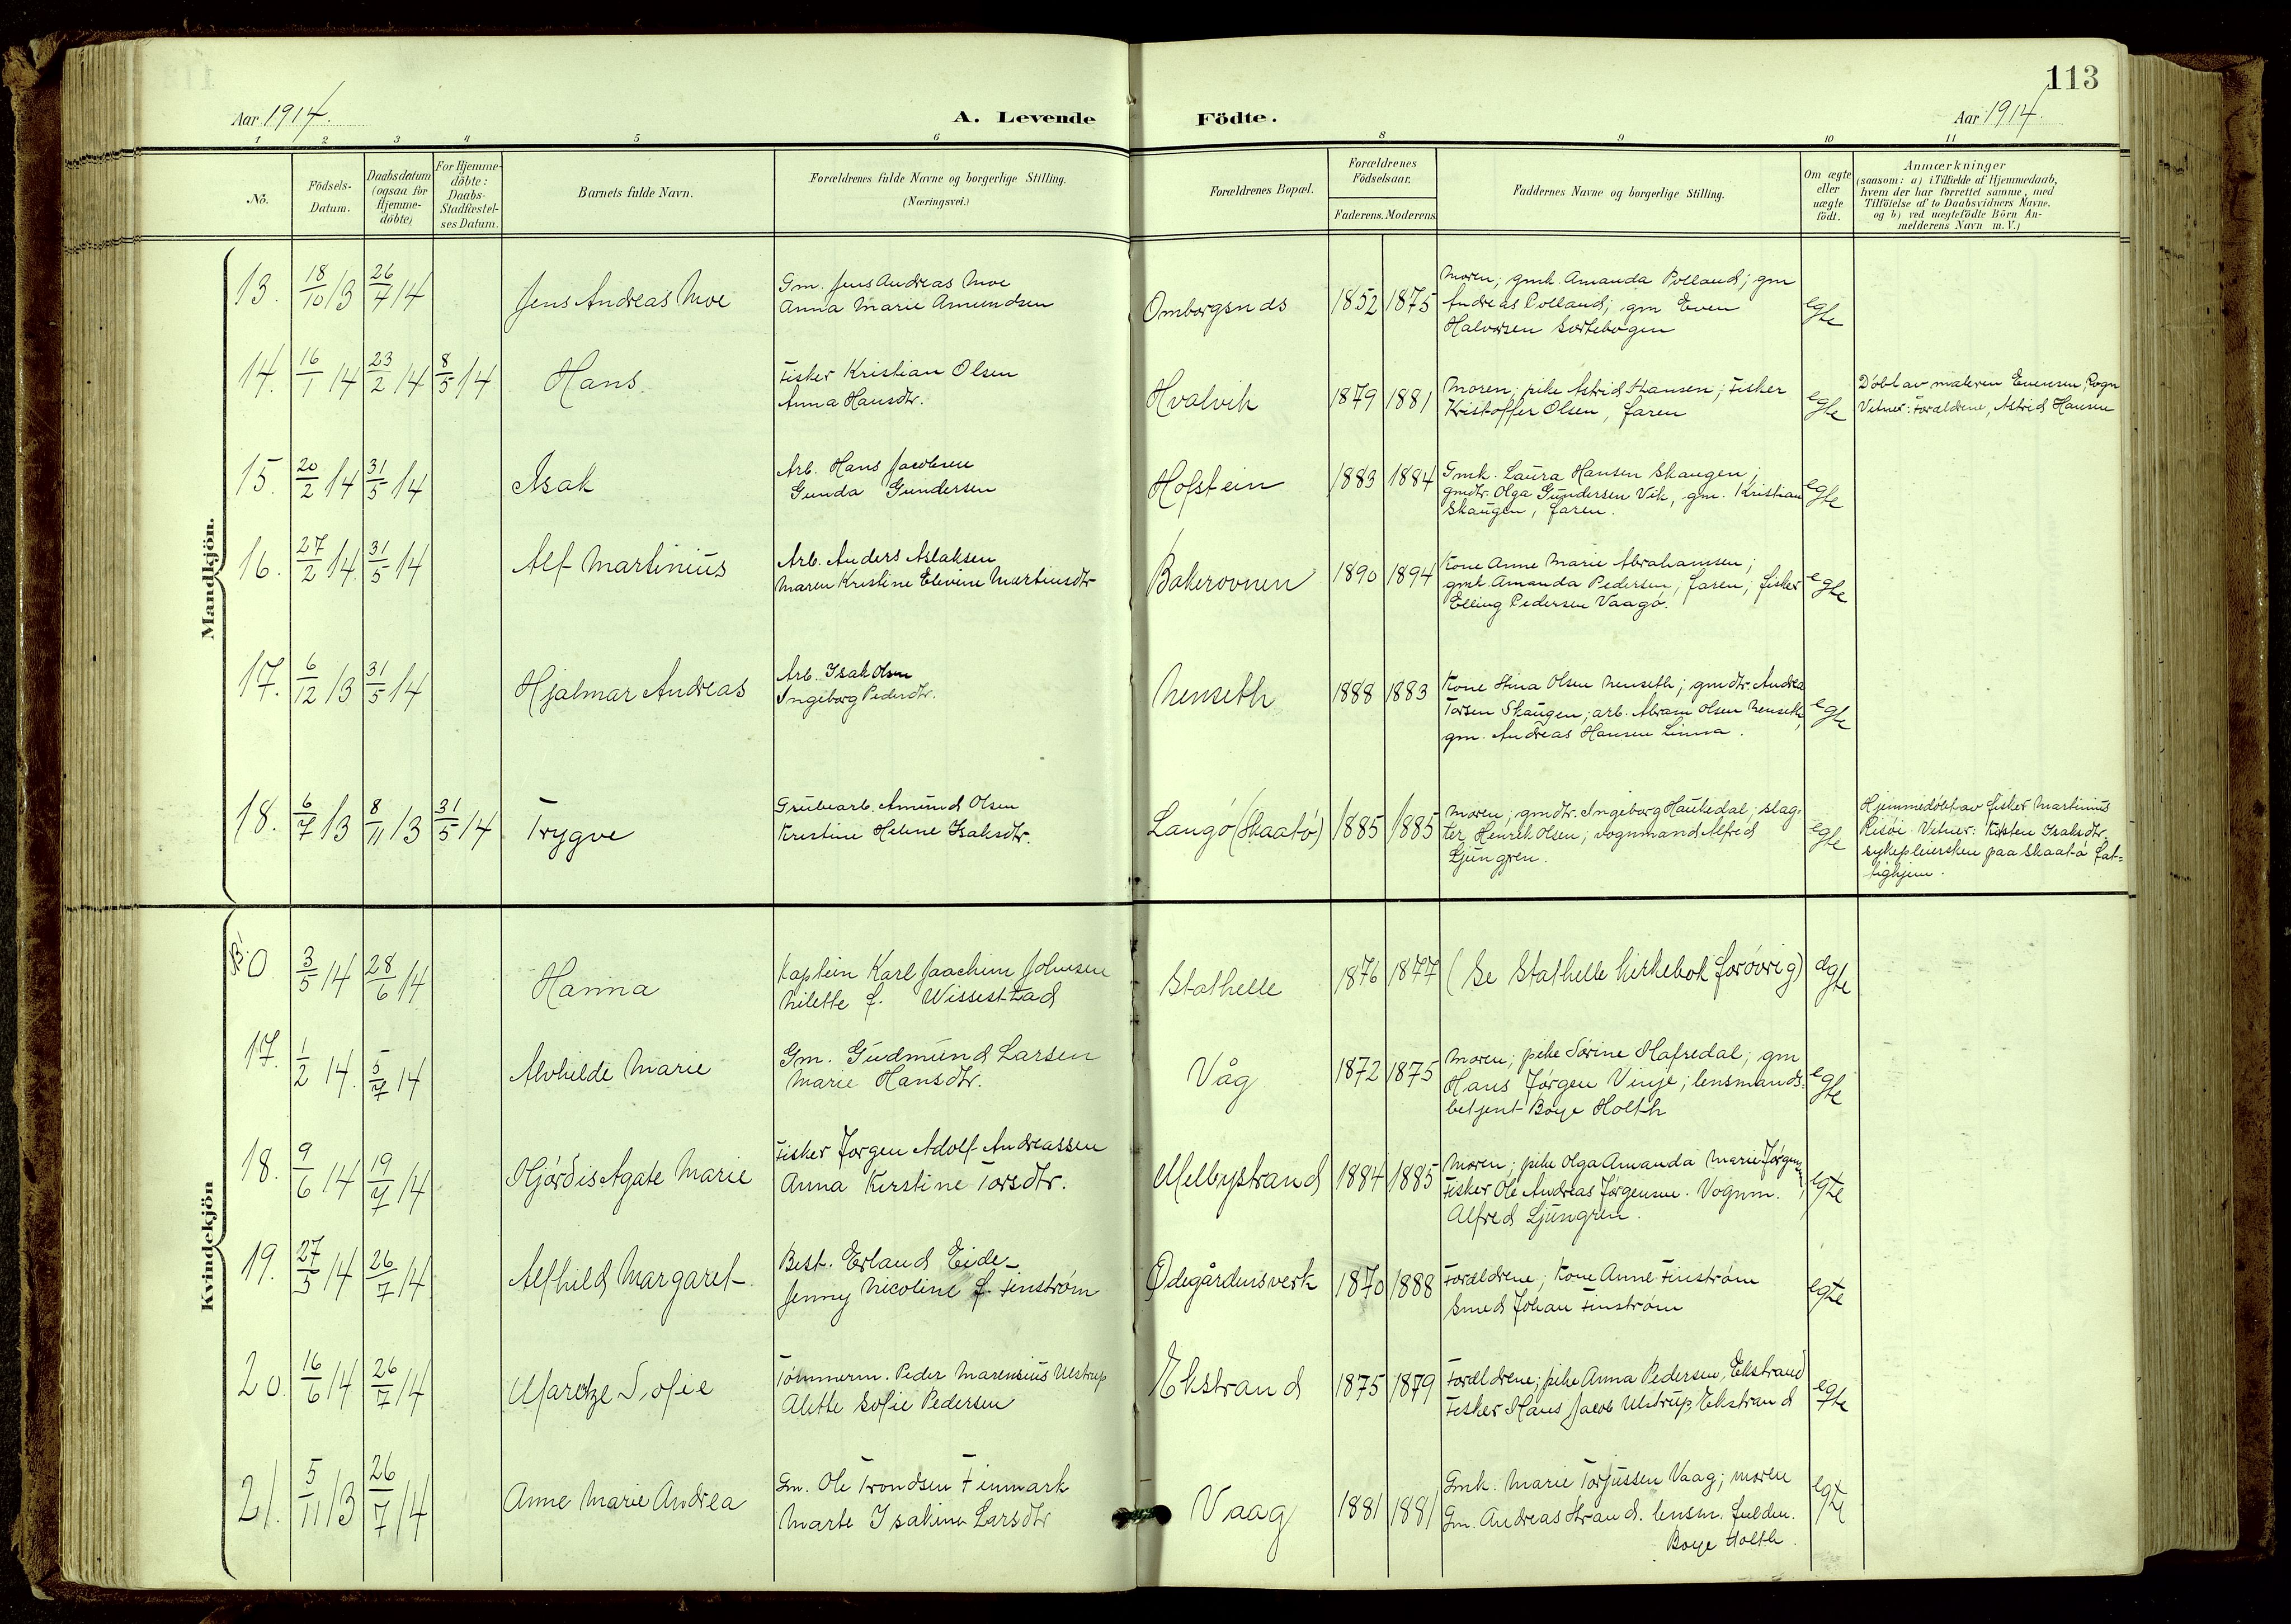 113
Aar 1914.
A. Levende Födte.
Aar 1914.
1 2 3 4 5 6 8 9 10 11
No.
Födsels-Datum.
Daabsdatum (ogsaa for Hjemme-döbte)
For Hjemme-döbte: Daabs-Stadfæstel-ses Datum.
Barnets fulde Navn.
Forældrenes fulde Navne og borgerlige Stilling.
(Næringsvei.)
Forældrenes Bopæl.
Forældrenes Födselsaar.
Faderens. Moderens.
Faddernes Navne og borgerlige Stilling.
Om ægte eller uægte födt.
Anmærkninger
(saasom: a) i Tilfælde af Hjemmedaab,
hvem der har forrettet samme, med
Tilföielse af to Daabsvidners Navne.
og b) ved uægtefödte Börn An-
melderens Navn m. V.)
Mandkjön.
13. 18/10 13 26/4 14 Jens Andreas Moe
Gm. Jens Andreas Moe
Anna Marie Amundsen
Omborgsnds 1852 1875
Moren; gmk. Amanda Polland; gm
Andreas Polland; gm Even
Halvorsen Sortebogen
egte
14. 16/1 14 23/2 14 8/5 14 Hans
Fisker Kristian Olsen
Anna Hansdtr.
Hvalvik 1879 1881
Moren; pike Astrid Hansen; Fisker
Kristoffer Olsen, faren
egte
Döbt av maleren Evensen,
Vitner: Forældrene, Astrid Hansen
15. 20/2 14 31/5 14 Isak
Arb. Hans Jacobsen
Gunda Gundersen
Hofstein 1883 1884
Gmk. Laura Hansen Skaugen;
gmdtr. Olga Gundersen Vik, gm. Kristian
Skaugen, faren.
egte
16. 27/2 14. 31/5 14 Alf Martinius
Arb. Anders Aslaksen
Maren Kristine Elevine Martinsdtr
Bakerovnen 1890 1894
Kone Anne Marie Abrahamsen;
gmk. Amanda Pedersen, faren; fisker
Elling Pedersen Vaagö.
egte
17. 6/12 13 31/5 14 Hjalmar Andreas
Arb. Isak Olsen
Ingeborg Pedersdtr.
Nenseth 1888 1883
Kone Stina Olsen Nenseth; gmdtr. Andrea
Torsen Skaugen; arb. Abram Olsen Nenseth,
gm. Andreas Hansen Linna.
egte
18. 6/7 13 8/11 13 31/5 14 Trygve
Grubearb. Amund Olsen
Kirstine Helene Isaksdtr.
Langö (Skaatö) 1885 1885
Moren; gmdtr. Ingeborg Haukedal; slag-
ter Henrik Olsen; vognmand Alfred
Ljungren.
egte
Hjemmedöbt av fisker Martinius
Risöi. Vitner: Kirsten Isaksdtr.
sykepleiersken paa Skaatö fat-
tighjem.
Kvindekjön
0 3/5 14 28/6 14 Hanna
Kaptein Karl Joachim Johnsen
Milette f. Wissestad
Stathelle 1876 1877
(Se Stathelle kirkebok forövrig)
egte
17. 1/2 14. 5/7 14 Alvhilde Marie
Gm. Gudmund Larsen
Marie Hansdtr.
Våg 1872 1875
Moren; pike Sörine Hafredal; gm
Hans Jörgen Vinje; lensmands-
betjent Boye Holth
egte
18. 9/6 14 19/7 14 Hjördis Agate Marie
Fisker Jørgen Adolf Andreassen
Anna Kirstine Torsdtr.
Melbystrand 1884 1885
Moren; pike Olga Amanda Marie Jörgensen,
Fisker Ole Andreas Jørgensen. Vognm.
Alfred Ljungren.
egte
19. 27/5 14 26/7 14 Alfhild Margaret
Best. Erland Eide
Jenny Nicoline f. Finström
Ødegårdensverk 1870 1888
Forældrene; Kone Anne Finström
Smed Johan Finström
egte
20. 16/6 14 26/7 14 Maretze Sofie
Tömmerm. Peder Marensius Ulstrup
Alette Sofie Pedersen
Ekstrand 1875 1879
Forældrene; pike Anna Pedersen, Ekstrand
Fisker Hans Jacob Ulstrup, Ekstrand
egte
21. 5/11 13 26/7 14 Anne Marie Andrea
Gm. Ole Trondsen Finmark
Marte Isakine Larsdtr
Vaag 1881 1881
Gmk. Marie Torjussen Vaag; moren
Gm. Andreas Strand. lensm. fuldm.
Boye Holth.
egte